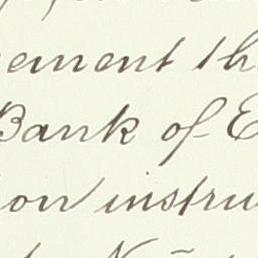 ement th
Bank of E
ion instru